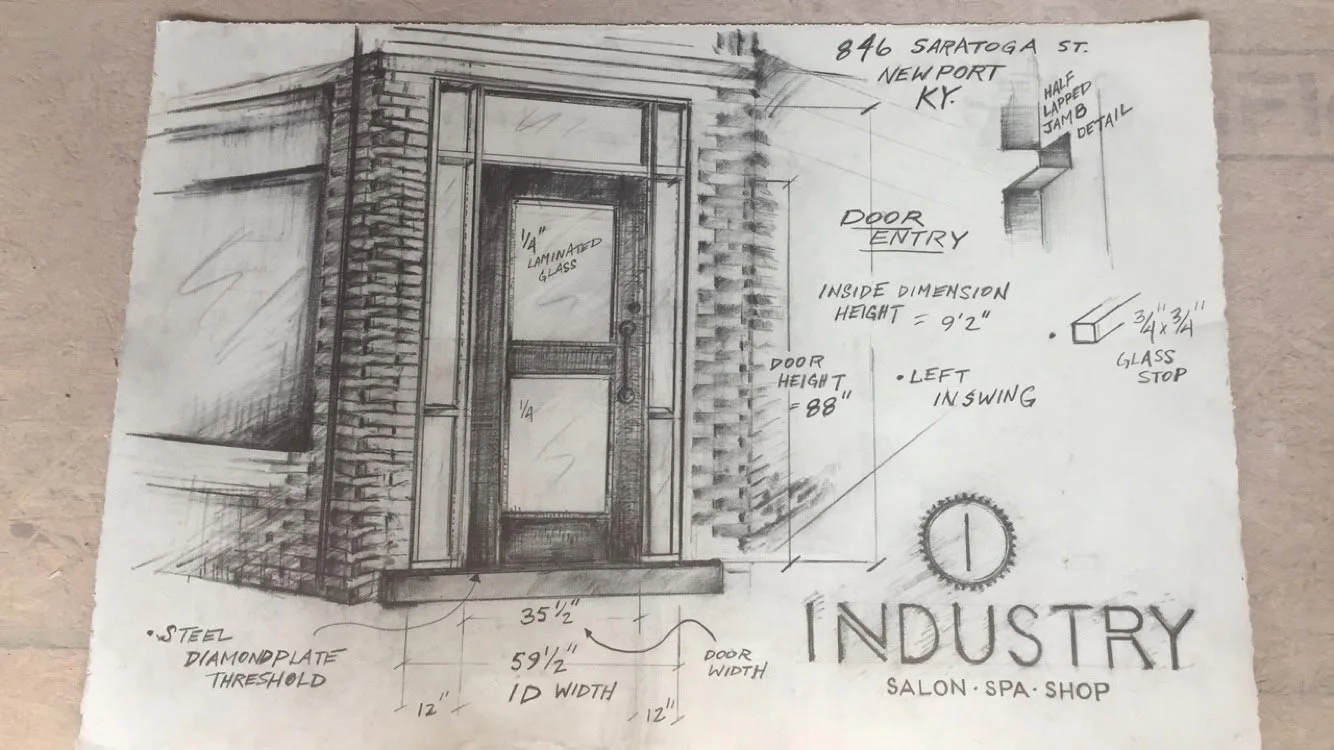 846 SARATOGA ST.
NEWPORT
KY.
HALF
LAPPED
JAMB
DETAIL
DOOR
ENTRY
1/4"
LAMINATED
GLASS
INSIDE DIMENSION
HEIGHT = 9'2"
3/4" x 3/4"
GLASS
STOP
DOOR
HEIGHT
= 88"
• LEFT
INSWING
1/4
• STEEL
DIAMONDPLATE
THRESHOLD
35 1/2"
59 1/2"
ID WIDTH
12"
12"
DOOR
WIDTH
I
INDUSTRY
SALON · SPA · SHOP